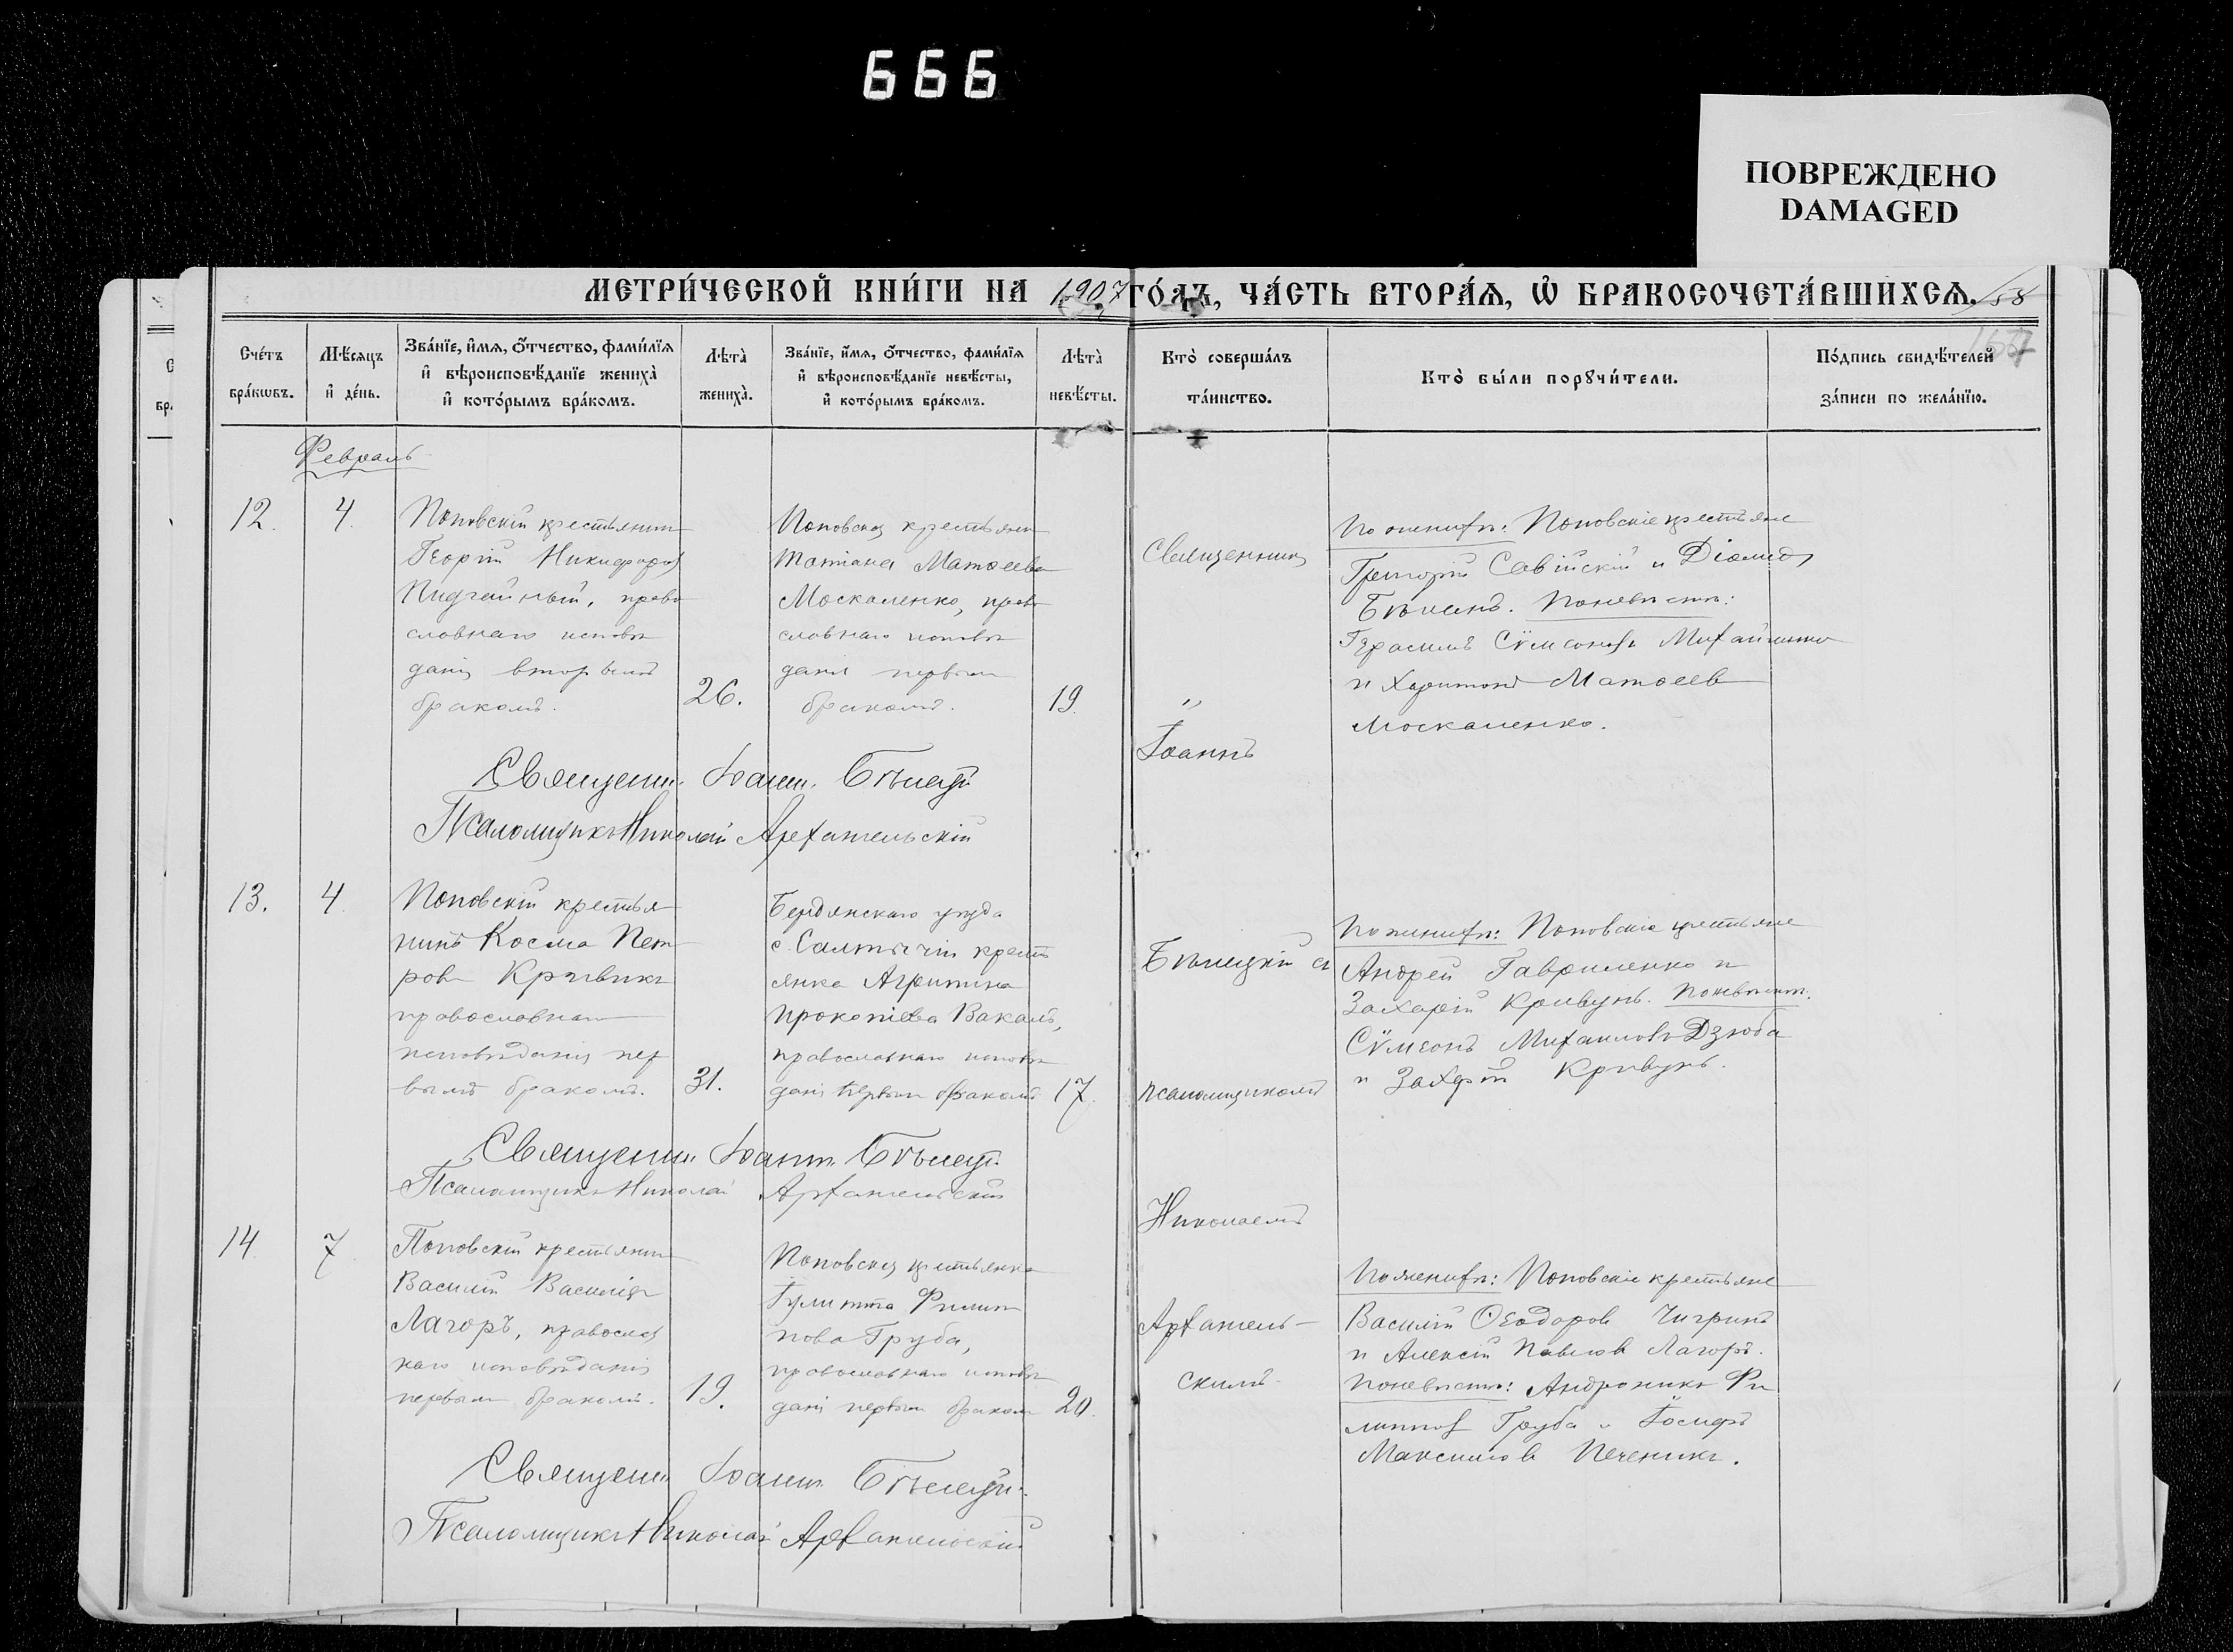 666
ПОВРЕЖДЕНО
DAMAGED
МЕТРИ́ЧЕСКОЙ КНИ́ГИ НА 1907 ГО́ДЪ, ЧА́СТЬ ВТОРА́Я, Ѡ҆ БРАКОСОЧЕТА́ВШИХСЯ.
158
Сче́тъ
бра́кѡвъ.
Мѣ́сяцъ
и҆ де́нь.
Зва́нїе, и҆́мя, ѻ҆́тчество, фами́лїя
и҆ вѣроисповѣ́данїе жениха̀
и҆ кото́рымъ бра́комъ.
Лѣта̀
жениха̀.
Зва́нїе, и҆́мя, ѻ҆́тчество, фами́лїя
и҆ вѣроисповѣ́данїе невѣ́сты,
и҆ кото́рымъ бра́комъ.
Лѣта̀
невѣ́сты.
Кто̀ соверша́лъ
та́инство.
Кто̀ бы́ли порꙋчи́тели.
По́дпись свидѣ́телей
за́писи по жела́нїю.
Февраль
12. 4.
Поповскій крестьянин
Георгій Никифоров
Пидгайный, право
словнаго исповѣ
данія вторымъ
бракомъ.
26.
Поповская крестьянк
Татіана Матѳеева
Москаленко, прав
славнаго исповѣ
данія первым
бракомъ.
19.
Священник
"
Іоаннъ
По женихѣ: Поповскіе крестьяне
Григорій Савійскій и Діомид
Бѣланъ. По невѣстѣ:
Герасимъ Сѵмеоновъ Михайленко
и Харитонъ Матѳеев
Москаленко.
Священн. Іоанн. Бѣлецкій
Псаломщикъ Николай Архангельскій
13. 4.
Поповскій крестья
нинъ Косма Пет
ровъ Кривик
православнаго
исповѣданія пер
вымъ бракомъ.
31.
Бердянскаго уѣзда
с. Салтычіи крест
янка Агрипина
Прокопіева Вакалъ,
православнаго исповѣ
данія первым бракомъ
17.
Бѣлецкій съ
псаломщикомъ
По женихѣ: Поповскіе крестьяне
Андрей Гавриленко и
Захарій Кривунъ. По невѣстѣ:
Сѵмеонъ Михаиловъ Дзюба
и Захарій Кривунъ.
Священн. Іоанн. Бѣлецкій
Псаломщикъ Николай Архангельскій
14. 7
Поповскій крестьянин
Василій Василіев
Лагоръ, православ
наго исповѣданія
первым бракомъ.
19.
Поповская крестьянка
Іулитта Филип
пова Груба,
православнаго исповѣ
данія первым браком
20.
Николаемъ
Архангель-
скимъ
По женихѣ: Поповскіе крестьяне
Василій Ѳеодоров Чигринъ
и Алексій Павлов Лагоръ.
По невѣстѣ: Андроникъ Фи
липпов Груба и Іосифъ
Максимов Печеникъ.
Священн Іоанн. Бѣлецкій
Псаломщикъ Николай Архангельскій